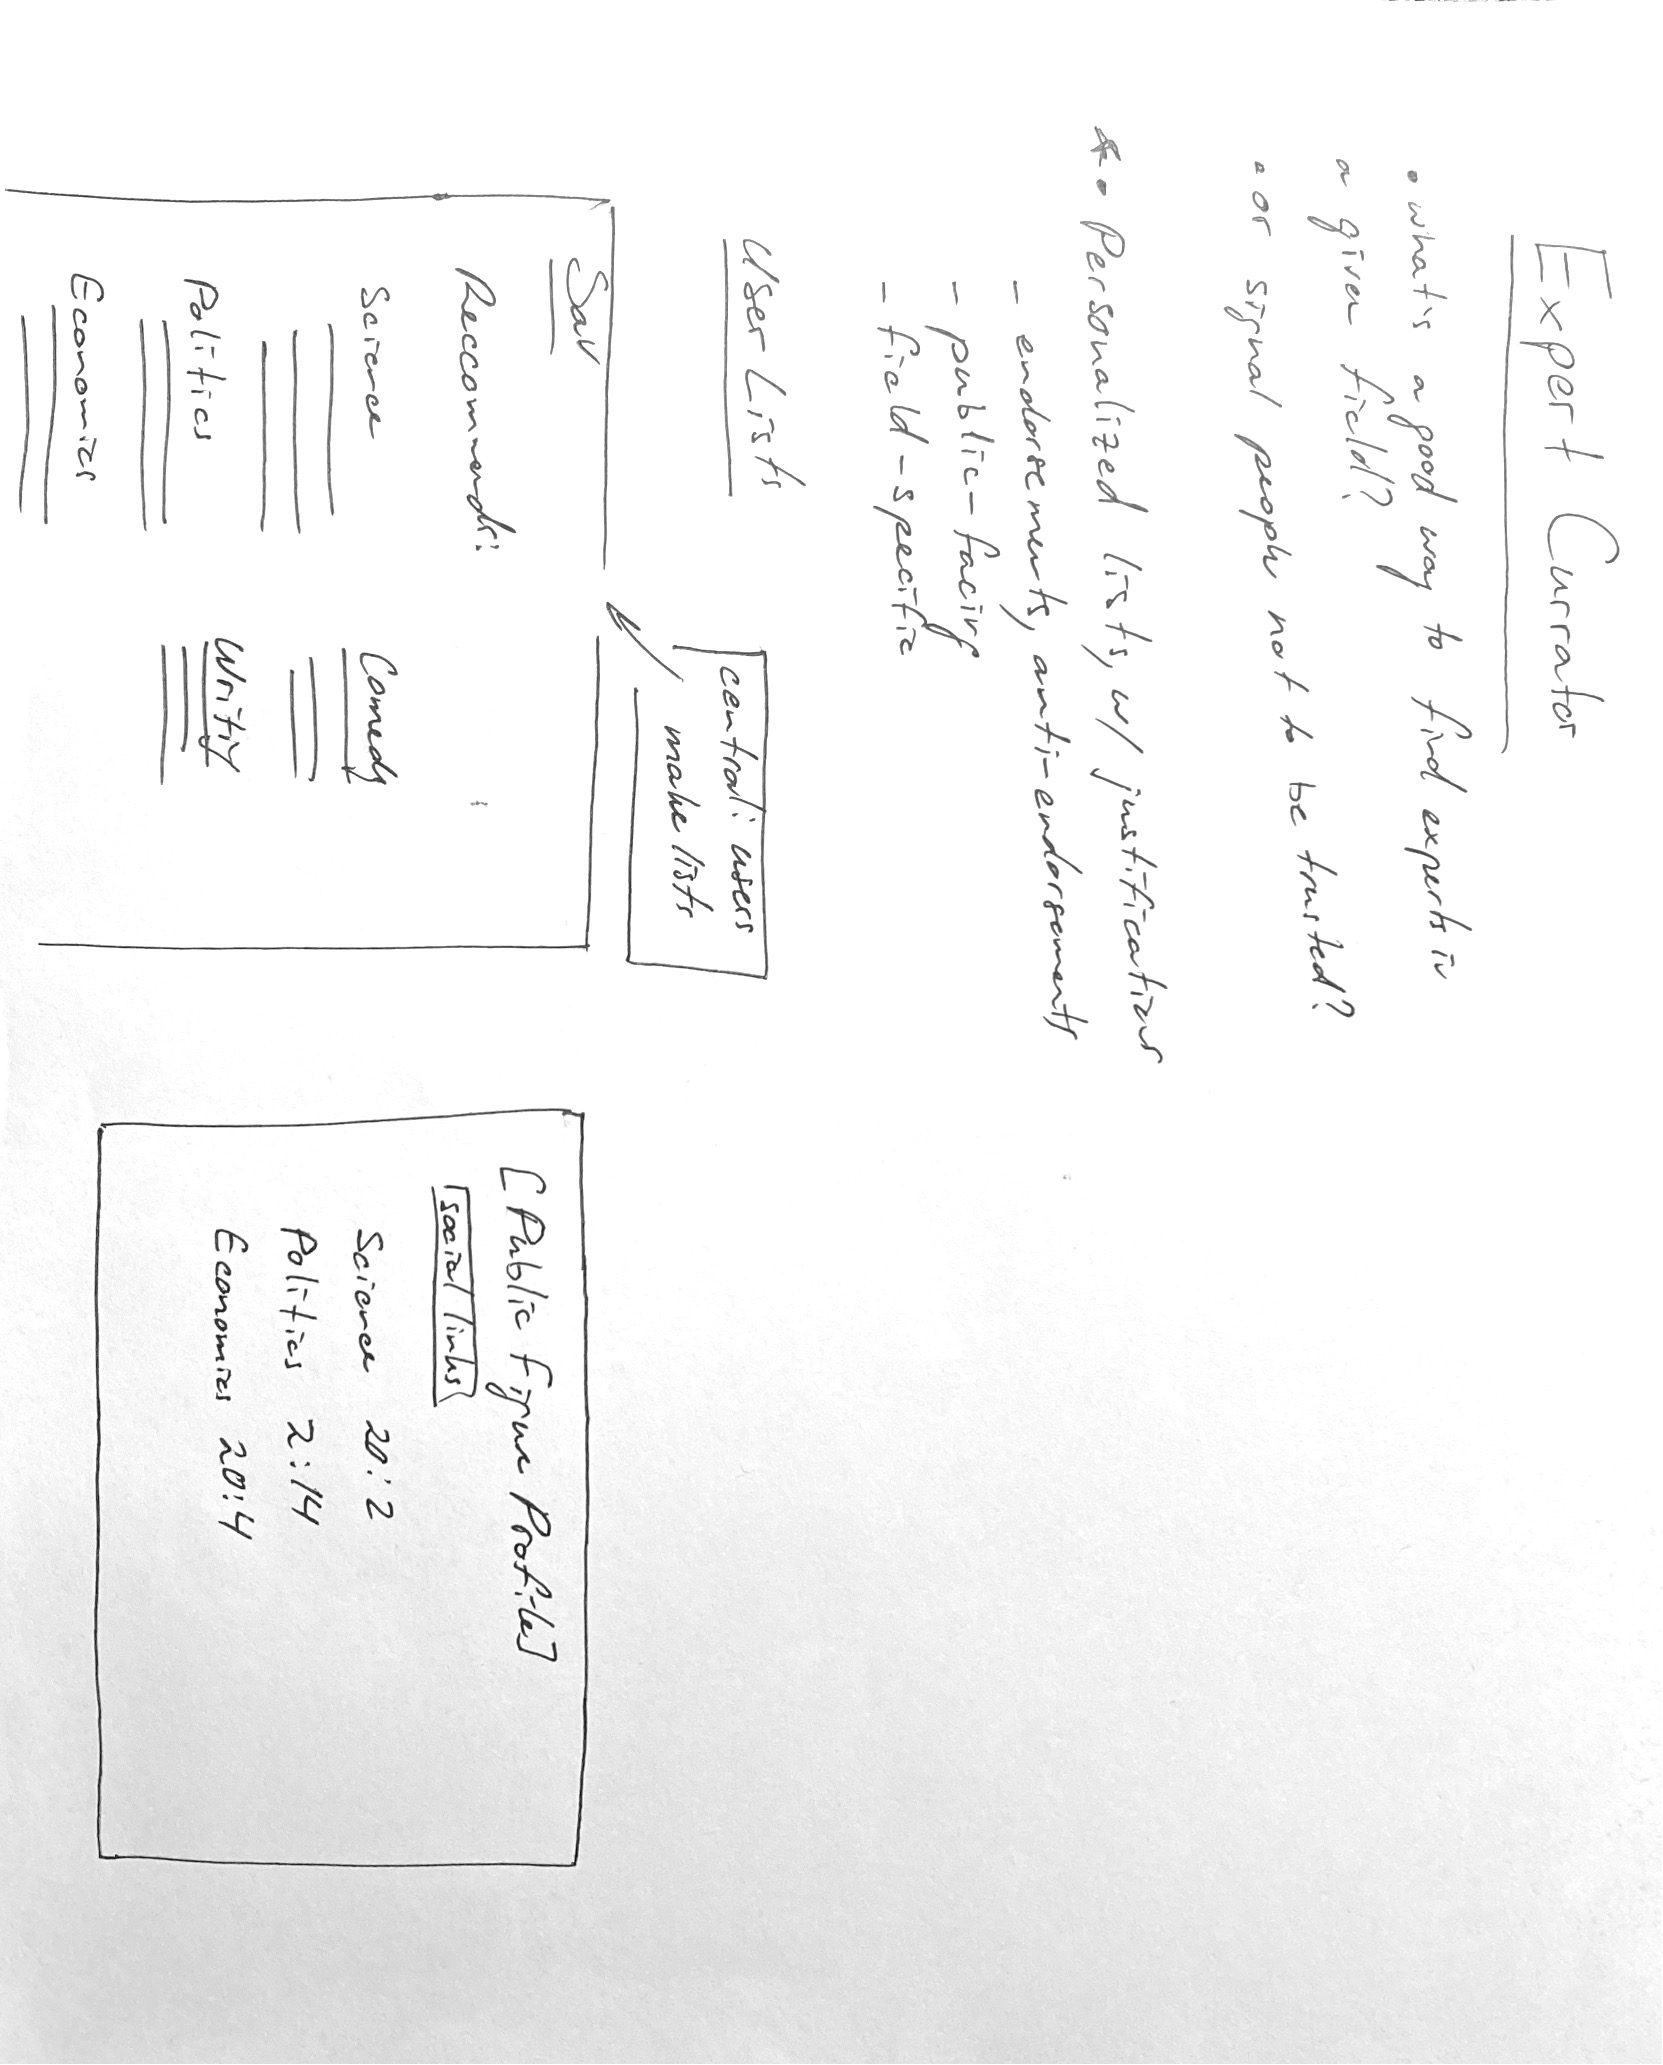 Expert Currator
• what's a good way to find experts in
a given field?
• or signal people not to be trusted?
* • Personalized lists, w/ justifications
- endorsements, anti-endorsements
- public-facing
- field-specific
User Lists
central: users
make lists
Sav
Reccommends:
Science
Comedy
Politics
Writing
Economics
[Public Figure Profile]
social links
Science 20:2
Politics 2:14
Economics 20:4